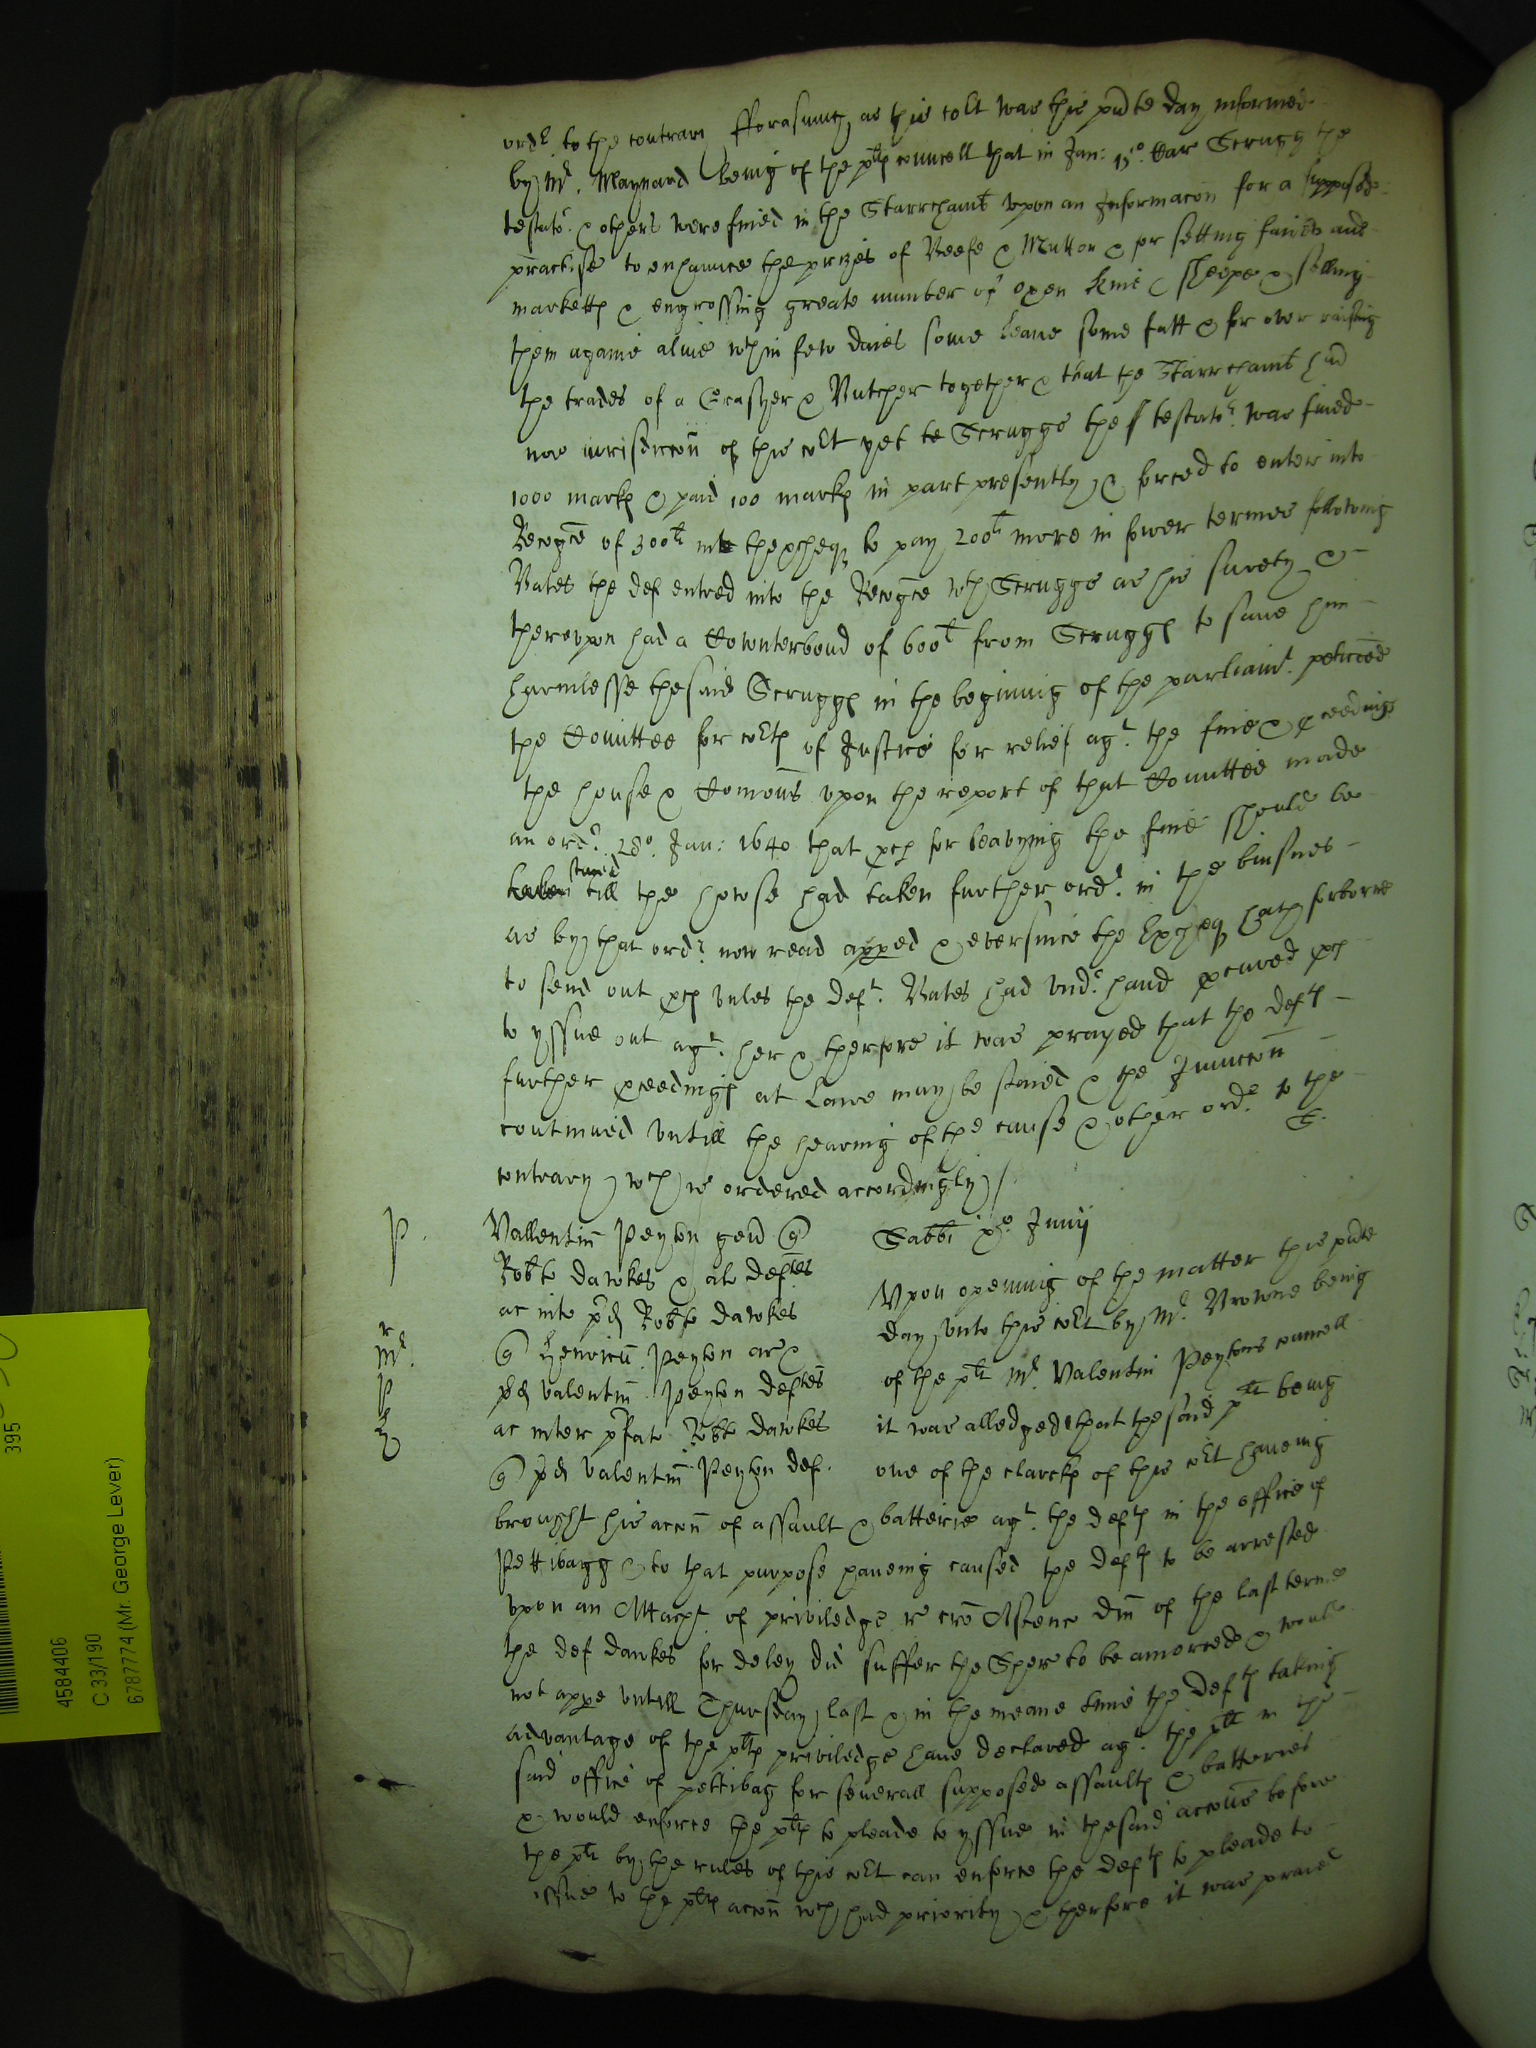 ordr to the contrary fforasmuch as this Cort was this pnte day informed
by Mr. Maynard being of the pltes councell that in Jan: 15o. Car Scruggs the
testator. & others were fined in the Starrchambr vpon an Informacon for a supposed
practise to enhaunce the prizes of Beefe & Mutton & for setting faires and
markettes & engrossing greate number of oxen kine & sheepe & selling
them againe aliue wthin few daies some leane some fatt & for
the trades of a Grasyer & Butcher together & that the Starrchambr had
noe iurisdiccon of this Cort yet te Scruggs the testator. was fined
1000 markes & paid 100 markes in part presently & forced to enter into
Recognce of 300li into thexcheqr to pay 200li more in fower termes following
Bates the def entred into the Recognce wth Scruggs as his surety &
therevpon had a Counterbond of 600li from Scruggs to saue him
harmlesse the said Scruggs in the beginning of the parliamt. peticoned
the Comittee for Cortes of Justice for relief agt. the fine & pceedings
the house & Comons vpon the report of that Comittee made
an ordr. 28o. Jan: 1640 that pces for leavying the fine should be
staied till the howse had taken further ordr. in the buisnes
as by that ordr now read apped & ever since the Excheqr hath forborne
to send out pces vnles the deft. Bates had vndr hand pcured pces
to yssue out agt. her & therfore it was prayed that the deftes
further pceedinges at Lawe may be staied & the Iniunccon
continued vntill the hearing of the cause & other ordr to the
contrary wch is ordered accordingly / S.
P. Vallentin Peyton gen Sabbi xo Junij
Robto dawkes & al deftes Vpon opening of the matter this pnte
ac inte pd Robto dawkes day vnto this Cort by Mr Browne being
Mr. Henricu Peyton ar & of the plt Mr Valentin Peytons councell
pd Valentin Peyton deftes it was alledged that the said plt being
ac inter pfat Robto dawkes one of the clarckes of this Cort haueing
pd Valentin Peyton def.
brought his accon of assault & batterie agt. the deftes in the office of
Pettibagg & to that purpose haueing caused the deftes to be arrested
vpon an Attachmt of priviledge re cro Ascenc dni of the last terme
the def dawkes for deley did suffer the Sher to be amerced & would
not appe vntill Thursday last & in the meane time the deftes taking
advantage of the pltes priviledge haue declared agt. the plt in the
said office of pettibag for seuerall supposed assaultes & batteries
& would enforce the pltes to pleade to yssue in the said accons before
the plt by the rules of this Cort can enforce the deftes to pleade to
issue to the pltes accon wch had priority & therfore it was praied
395
4584406
C 33/190
6787774 (Mr. George Lever)